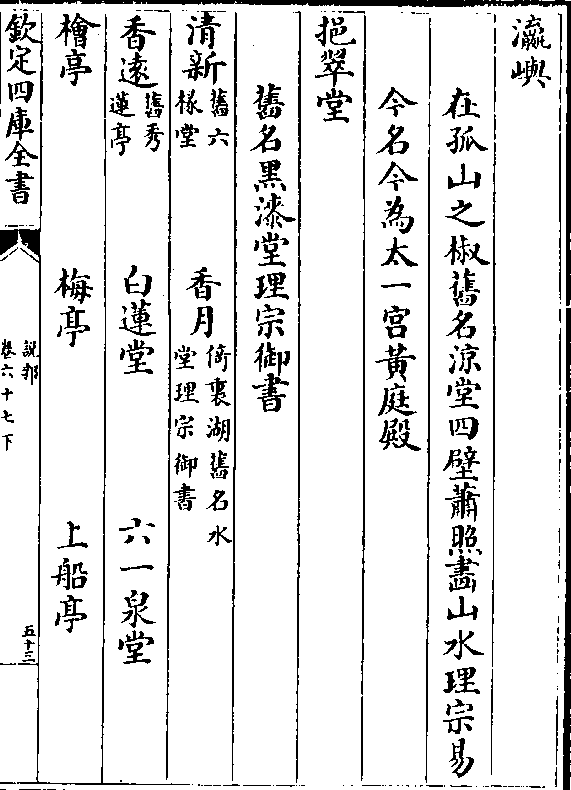 瀛嶼
在孤山之椒舊名涼堂四壁蕭照畵山水理宗易
今名今為太一宮黃庭殿
挹翠堂
舊名黑漆堂理宗御書
清新舊六様堂　香月倚裏湖舊名水堂理宗御書
香遠舊秀蓮亭　白蓮堂　六一泉堂
檜亭　梅亭　上船亭
欽定四庫全書
說郛
卷六十七下
五十三